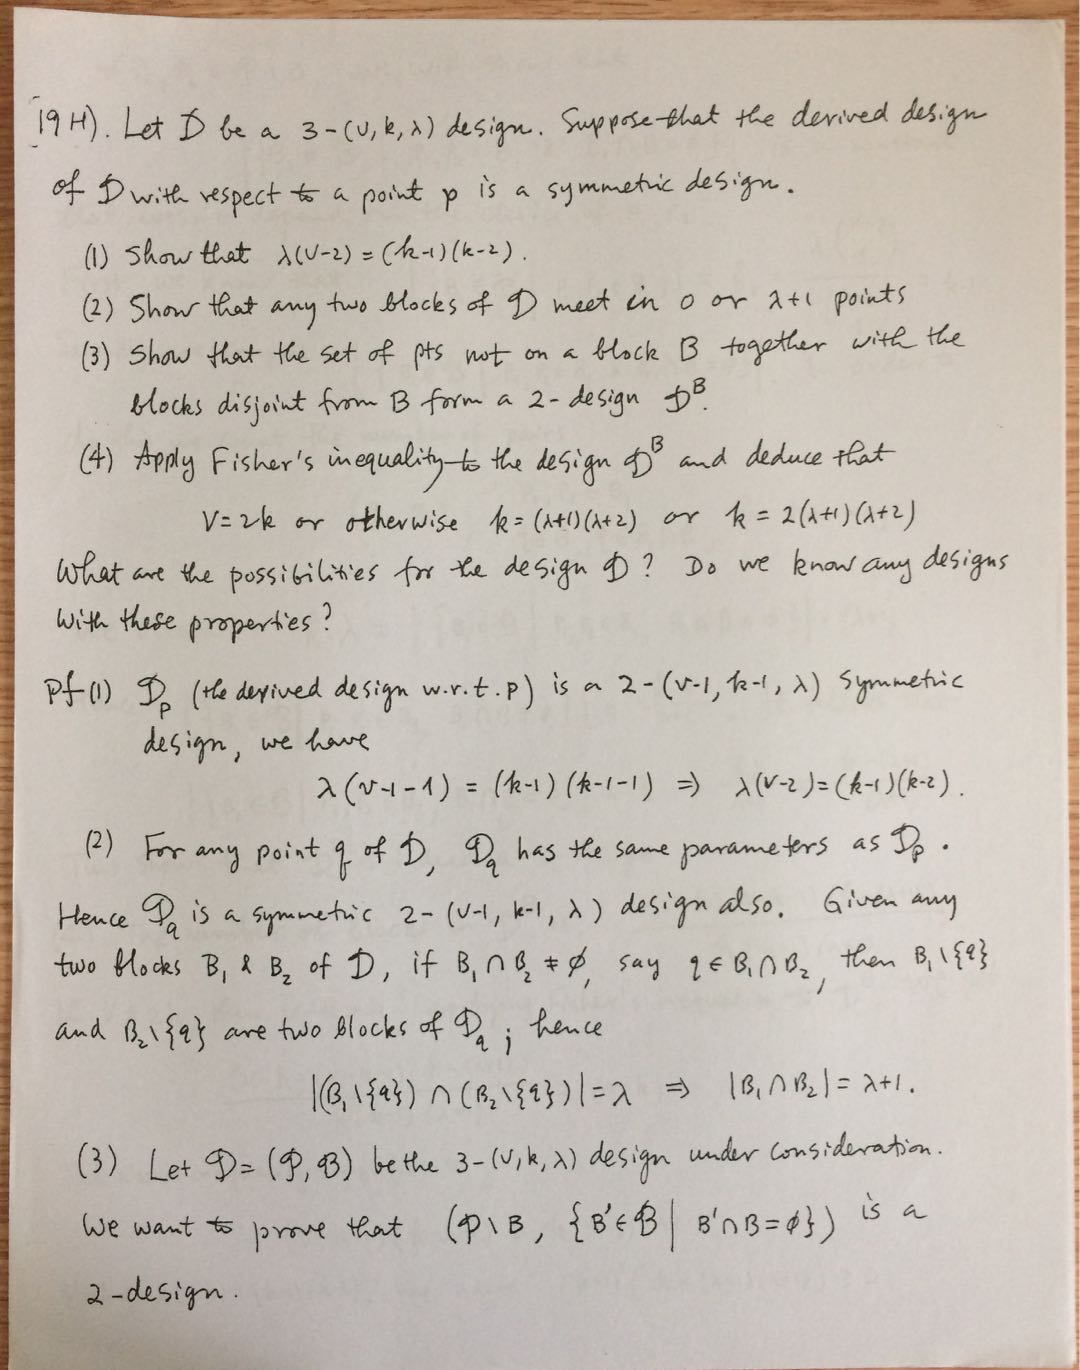 [19H). Let D be a 3-(v,k,λ) design. Suppose that the derived design
of D with respect to a point p is a symmetric design.
(1) Show that λ(v-2) = (k-1)(k-2).
(2) Show that any two blocks of D meet in 0 or λ+1 points
(3) Show that the set of pts not on a block B together with the
blocks disjoint from B form a 2-design D^B.
(4) Apply Fisher's inequality to the design D^B and deduce that
v=2k or otherwise k=(λ+1)(λ+2) or k=2(λ+1)(λ+2)
What are the possibilities for the design D? Do we know any designs
with these properties?
Pf (1) D_p (the derived design w.r.t. p) is a 2-(v-1, k-1, λ) symmetric
design, we have
λ(v-1-1) = (k-1)(k-1-1) ⇒ λ(v-2)=(k-1)(k-2).
(2) For any point q of D, D_q has the same parameters as D_p.
Hence D_q is a symmetric 2-(v-1, k-1, λ) design also. Given any
two blocks B₁ & B₂ of D, if B₁∩B₂≠∅, say q∈B₁∩B₂, then B₁\{q}
and B₂\{q} are two blocks of D_q; hence
|(B₁\{q})∩(B₂\{q})|=λ ⇒ |B₁∩B₂|=λ+1.
(3) Let D=(P,B) be the 3-(v,k,λ) design under consideration.
We want to prove that (P\B, {B'∈B | B'∩B=∅}) is a
2-design.